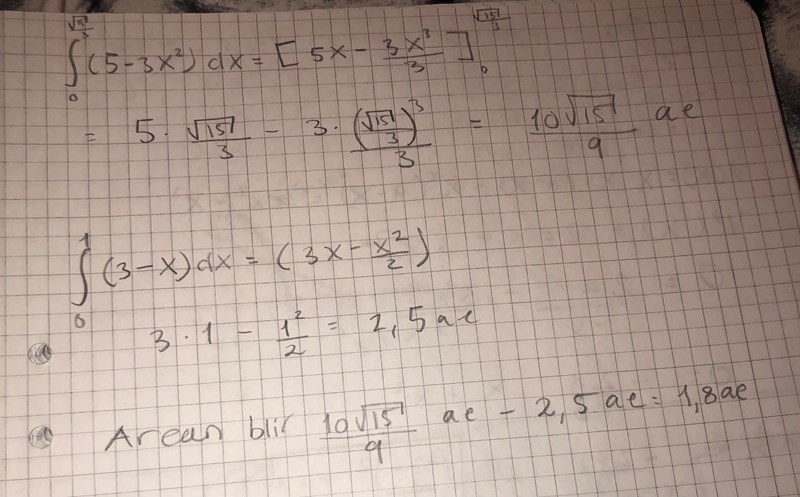 ∫₀^(√15/3) (5-3x²) dx = [5x - 3x³/3]₀^(√15/3)
= 5 · √15/3 - 3 · (√15/3)³/3 = 10√15/9 ae
∫₀¹ (3-x) dx = (3x - x²/2)
3 · 1 - 1²/2 = 2,5 ae
Arean blir 10√15/9 ae - 2,5 ae = 1,8 ae